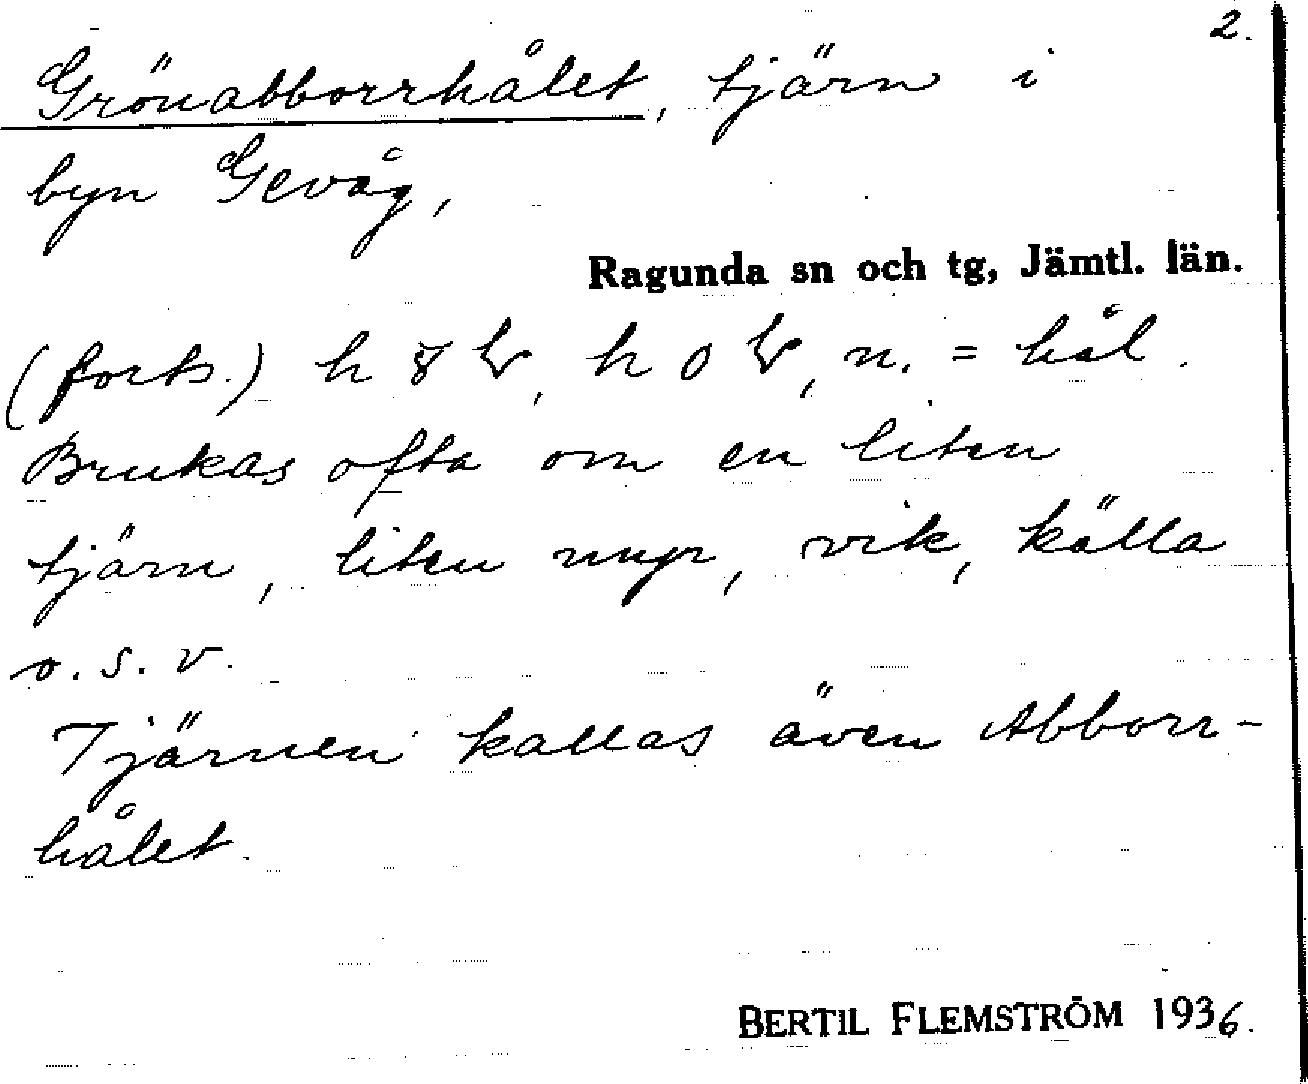 2.
Grönabborrhålet, tjärn i
byn Gevåg,
Ragunda sn och tg, Jämtl. län.
(forts.) h , h , n. = hål.
Brukas ofta om en liten
tjärn, liten myr, vik, källa
o. s. v.
Tjärnen kallas även Abborr-
hålet.
BERTIL FLEMSTRÖM 1936.